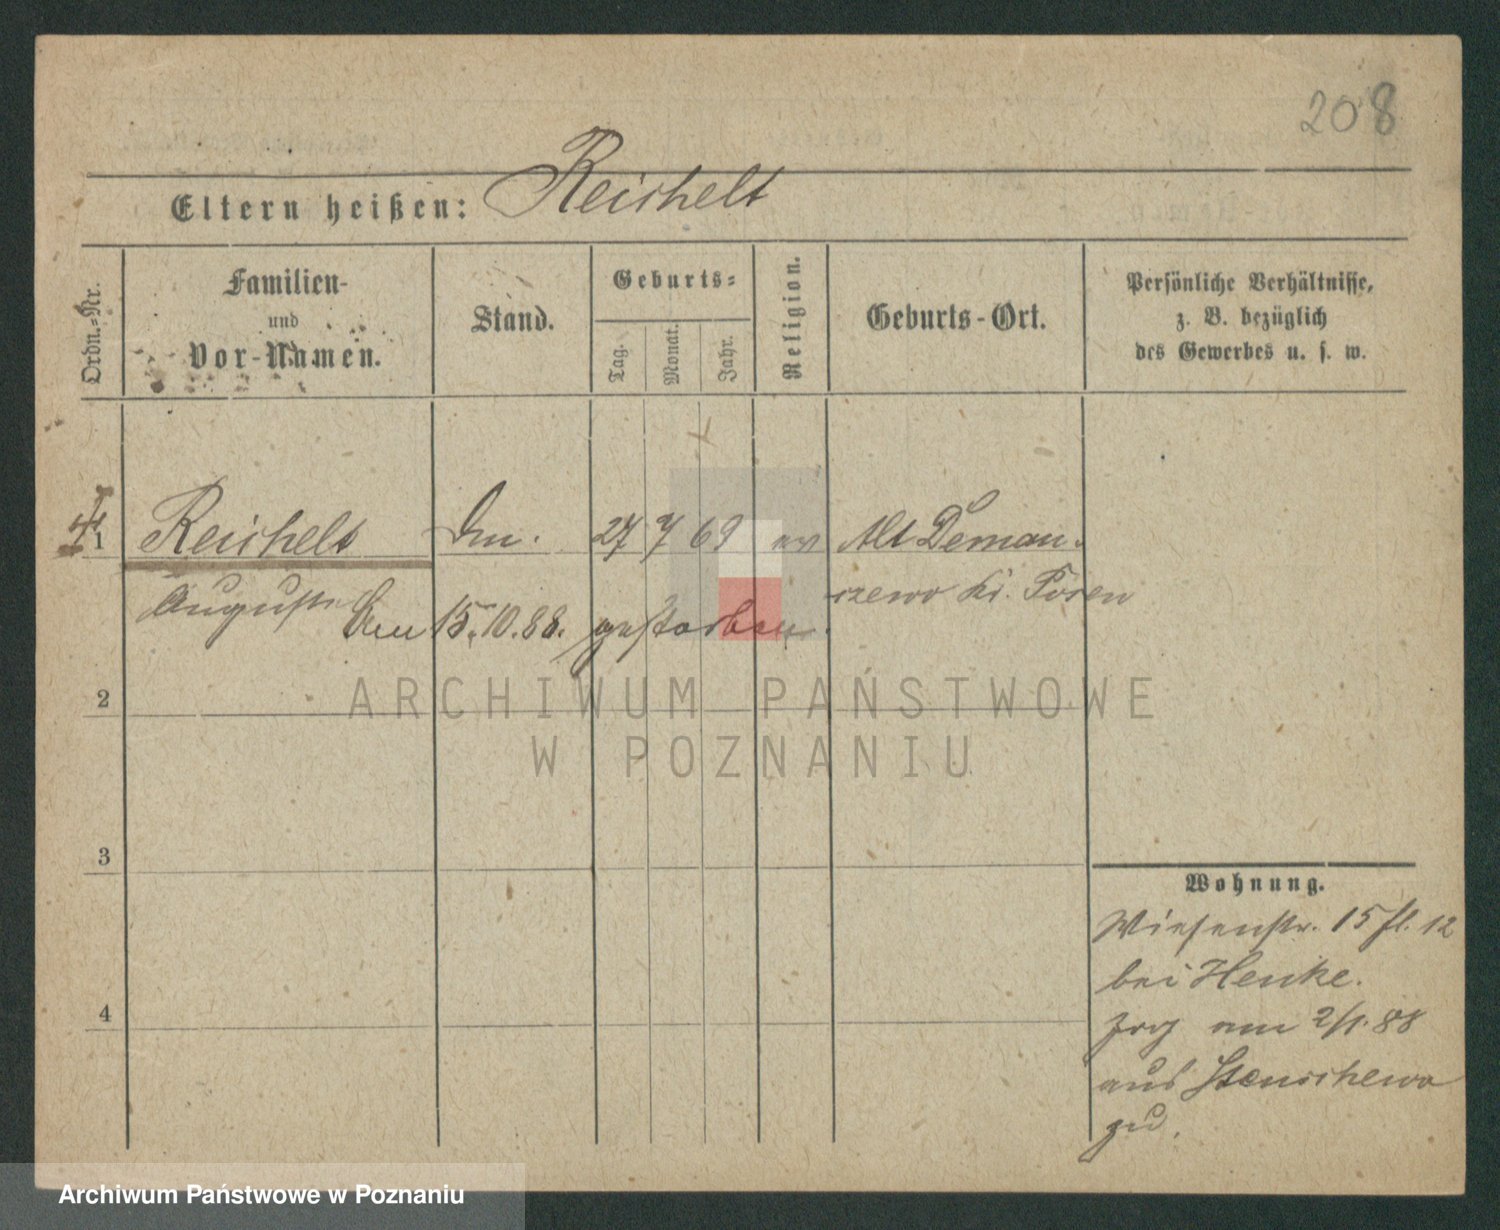 208
Eltern heißen: Reichelt
Ordn.-Nr.
Familien-
und
Vor-Namen.
Stand.
Geburts-
Tag.
Monat.
Jahr.
Religion.
Geburts-Ort.
Persönliche Verhältnisse,
z. B. bezüglich
des Gewerbes u. s. w.
1 Reichelt 27 7 69 ev Alt Deman-
Auguste Am 15.10.88. gestorben. czewo Kr. Posen
2
ARCHIWUM PAŃSTWOWE
W POZNANIU
3
Wohnung.
Wiesenstr. 15 fl. 12
bei Henke.
4
zog am 2/1.88
aus Stenschewo
zu.
Archiwum Państwowe w Poznaniu